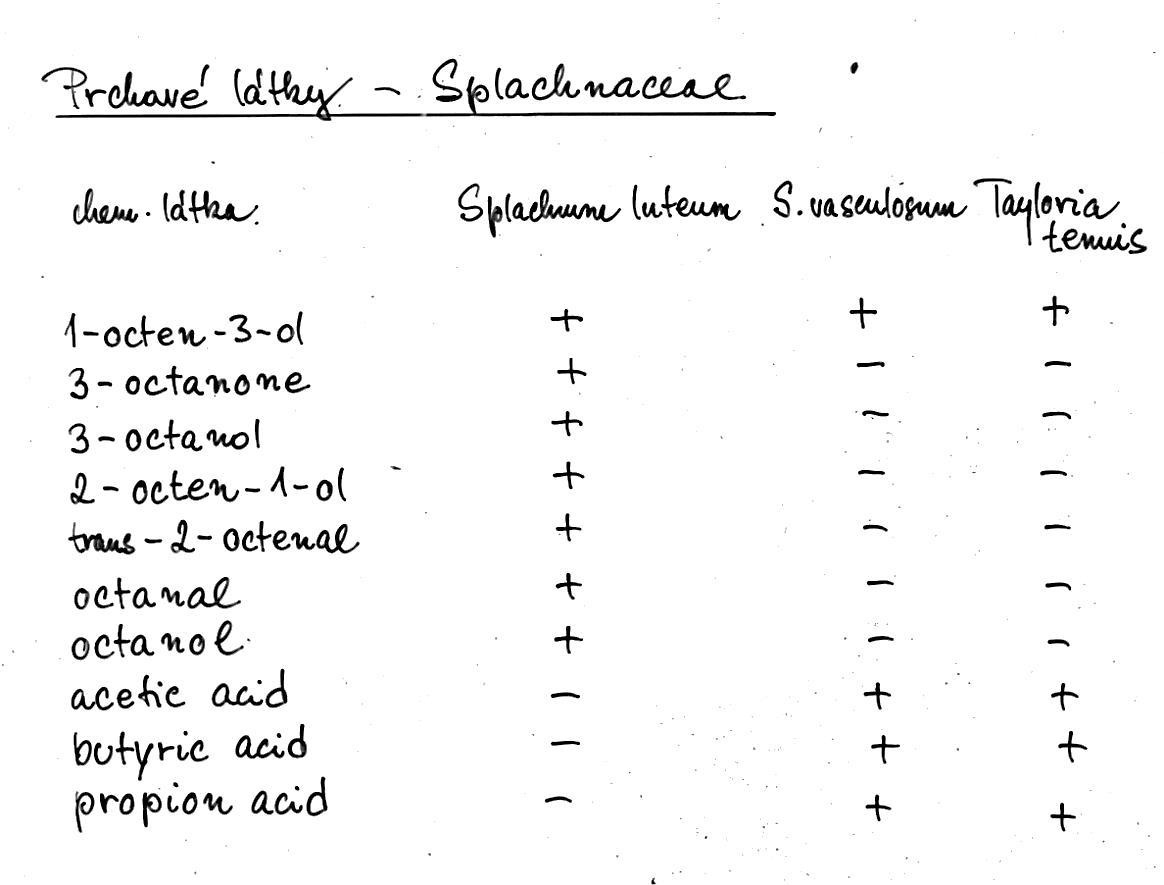 Prchavé látky - Splachnaceae
chem. látka. Splachnum luteum S. vasculosum Tayloria
tenuis
1-octen-3-ol + + +
3-octanone + - -
3-octanol + - -
2-octen-1-ol + - -
trans-2-octenal + - -
octanal + - -
octanol + - -
acetic acid - + +
butyric acid - + +
propion acid - + +